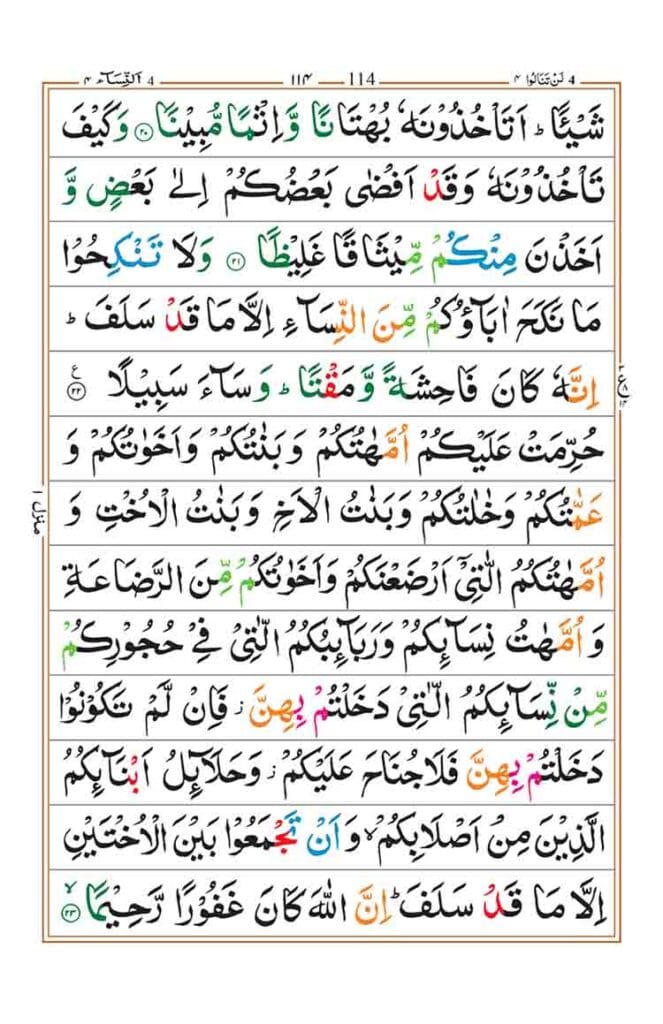 النِّسَآء ٤ 4 ١١٤ 114 لَنْ تَنَالُوا ٤ 4
شَيْئًا ؕ اَتَاْخُذُوْنَهٗ بُهْتَانًا وَّ اِثْمًا مُّبِيْنًا ﴿۲۰﴾ وَكَيْفَ
تَاْخُذُوْنَهٗ وَقَدْ اَفْضٰى بَعْضُكُمْ اِلٰى بَعْضٍ وَّ
اَخَذْنَ مِنْكُمْ مِّيْثَاقًا غَلِيْظًا ﴿۲۱﴾ وَلَا تَنْكِحُوْا
مَا نَكَحَ اٰبَآؤُكُمْ مِّنَ النِّسَآءِ اِلَّا مَا قَدْ سَلَفَ ؕ
اِنَّهٗ كَانَ فَاحِشَةً وَّ مَقْتًا ؕ وَ سَآءَ سَبِيْلًا ﴿۲۲﴾ ع
حُرِّمَتْ عَلَيْكُمْ اُمَّهٰتُكُمْ وَ بَنٰتُكُمْ وَ اَخَوٰتُكُمْ وَ
عَمّٰتُكُمْ وَخٰلٰتُكُمْ وَبَنٰتُ الْاَخِ وَبَنٰتُ الْاُخْتِ وَ
منزل ١
اُمَّهٰتُكُمُ الّٰتِىْۤ اَرْضَعْنَكُمْ وَاَخَوٰتُكُمْ مِّنَ الرَّضَاعَةِ
وَ اُمَّهٰتُ نِسَآئِكُمْ وَرَبَآئِبُكُمُ الّٰتِىْ فِىْ حُجُوْرِكُمْ
مِّنْ نِّسَآئِكُمُ الّٰتِىْ دَخَلْتُمْ بِهِنَّ ؗ فَاِنْ لَّمْ تَكُوْنُوْا
دَخَلْتُمْ بِهِنَّ فَلَا جُنَاحَ عَلَيْكُمْ ؗ وَحَلَآئِلُ اَبْنَآئِكُمُ
الَّذِيْنَ مِنْ اَصْلَابِكُمْ ۙ وَ اَنْ تَجْمَعُوْا بَيْنَ الْاُخْتَيْنِ
اِلَّا مَا قَدْ سَلَفَ ؕ اِنَّ اللّٰهَ كَانَ غَفُوْرًا رَّحِيْمًا ﴿۲۳﴾ ۙ